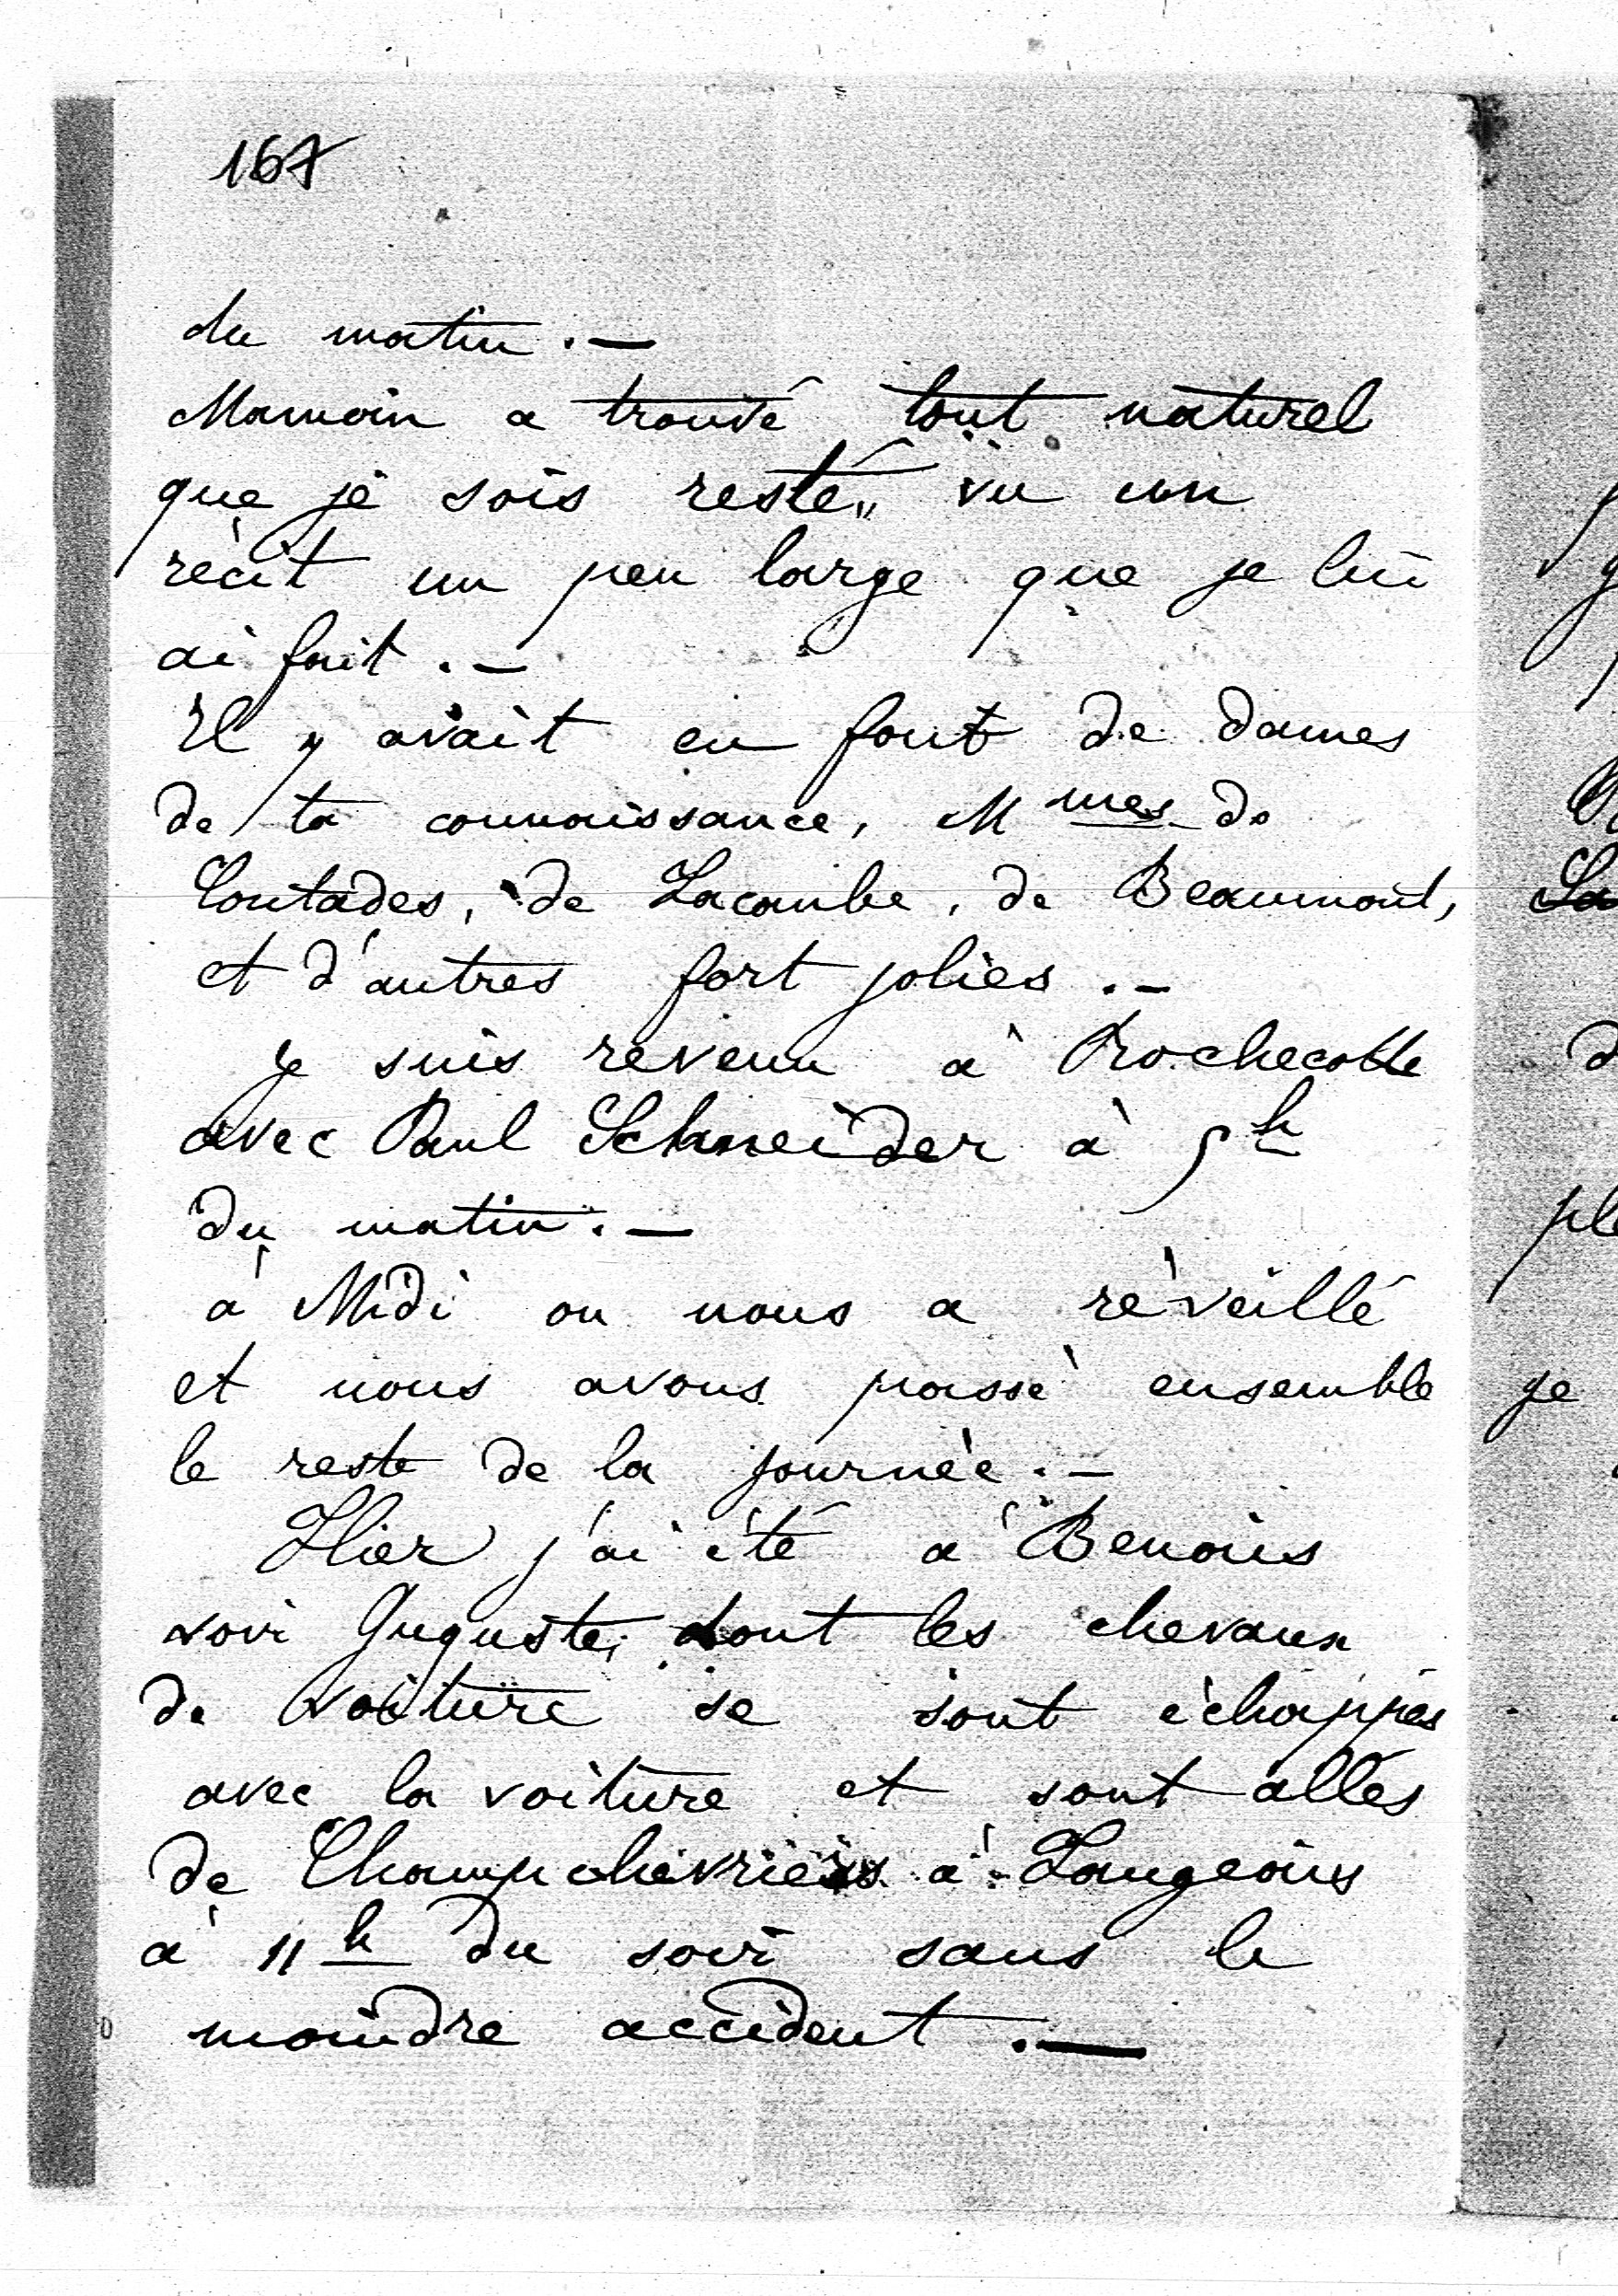 167
du matin. —
Maman a trouvé tout naturel
que je sois resté, vu un
récit un peu large que je lui
ai fait. —
Il y avait en fait de dames
de ta connaissance, Mmes de
Contades, de Lacombe, de Beaumont,
et d'autres fort jolies. —
Je suis revenu à Rochecotte
avec Paul Schneider à 5h
du matin. —
à Midi on nous a réveillé
et nous avons passé ensemble
le reste de la journée. —
Hier j'ai été à Benais
voir Auguste, dont les chevaux
de voiture se sont échappés
avec la voiture et sont allés
de Champchévriers à Langeais
à 11h du soir sans le
moindre accident. —